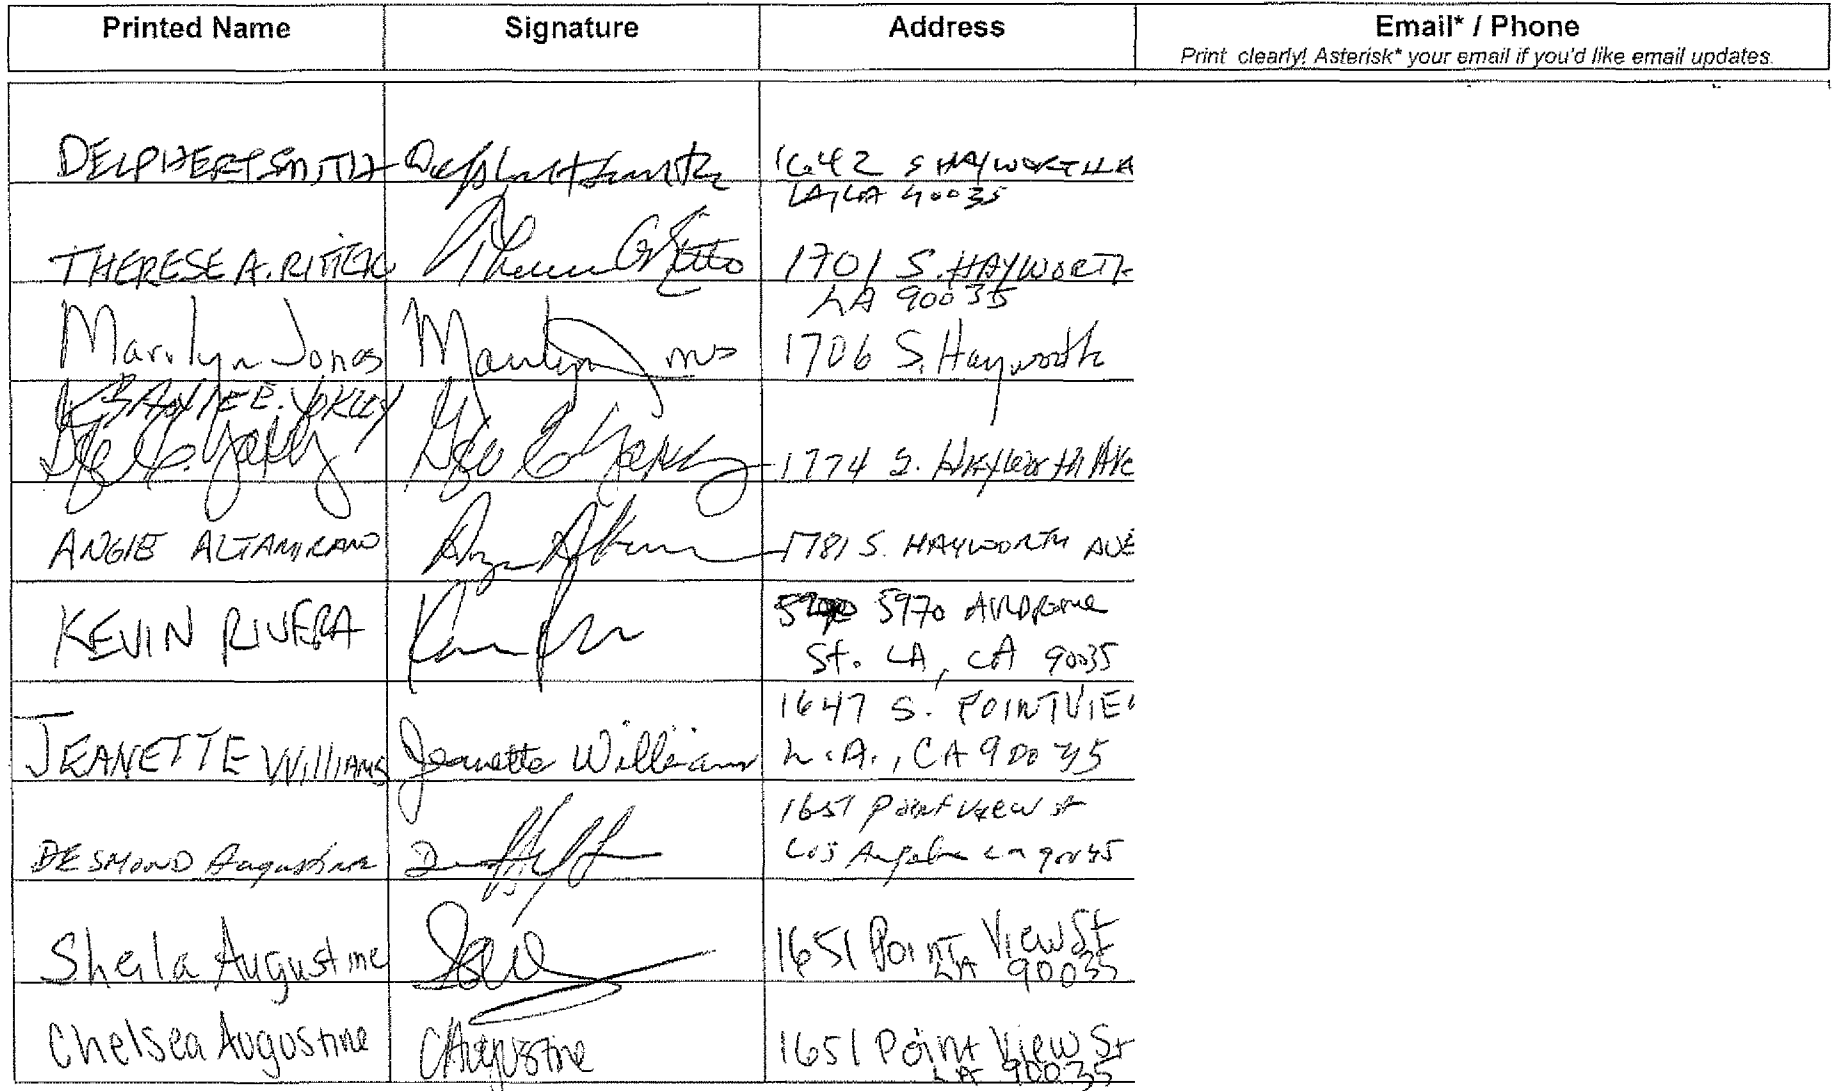 Printed Name Signature Address Email* / Phone
Print clearly! Asterisk* your email if you'd like email updates.
DELPHERT SMITH Delphert Smith 1642 S HAYWORTH LA
LA, CA 90035
THERESE A. 1701 S. HAYWORTH
LA 90035
Marilyn Jones Marilyn Jones 1706 S. Hayworth
E. YOKLEY
1774 S. HAYWORTH AVE
ANGIE ALTAMIRANO 1781 S. HAYWORTH AVE
KEVIN RIVERA 5970 AIRDROME
St. LA, CA 90035
1647 S. POINTVIE
JEANETTE WILLIAMS Jeanette Williams L.A., CA 90035
1651 Point View St
DESMOND Augustine Los Angeles CA 90035
Sheila Augustine 1651 Point View St
LA 90035
Chelsea Augustine CAugustine 1651 Point View St
LA 90035